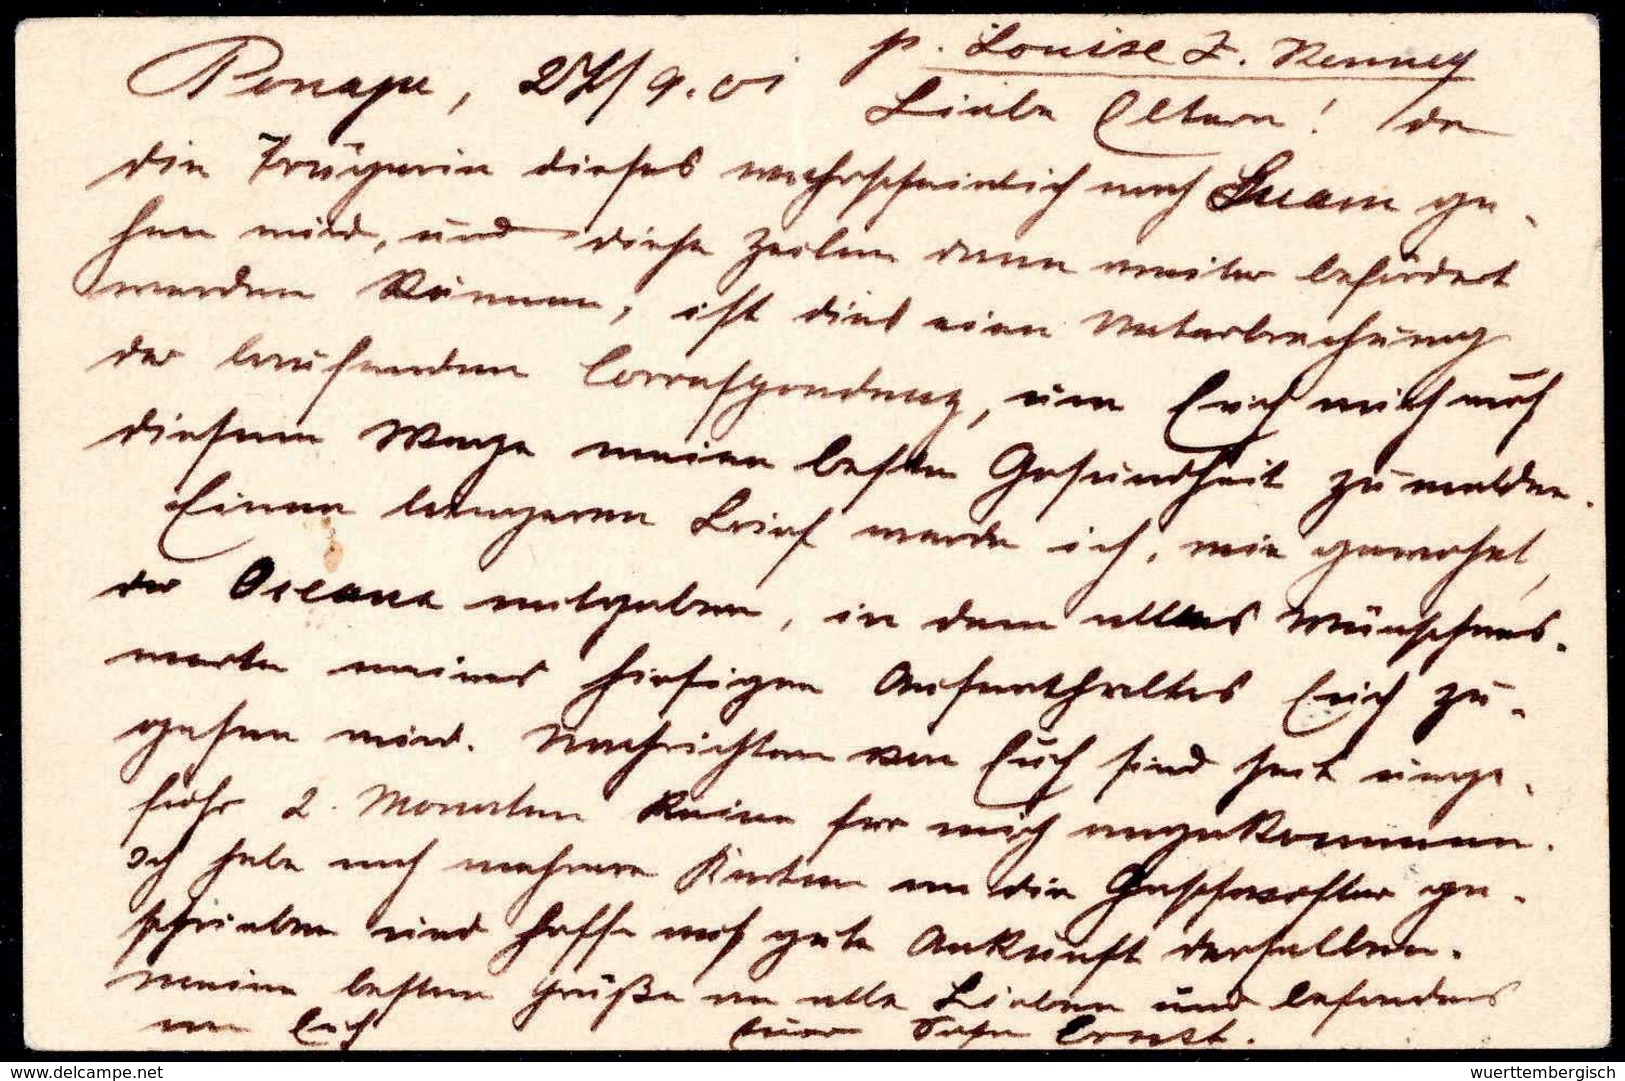 p. Louise J. Kenney
Ponape, 25/9.01
Liebe Eltern! da
die Trägerin dieses wahrscheinlich nach Guam ge-
hen wird, und diese Zeilen dann weiter befördert
werden können, ist dies eine Unterbrechung
der laufenden Correspondenz, um Euch mich auf
diesem Wege meine beste Gesundheit zu melden.
Einen längeren Brief werde ich, wie gewohnt,
der Oceana mitgeben, in dem alles Wünschens-
werte meines hiesigen Aufenthaltes Euch zu-
gehen wird. Nachrichten von Euch sind seit unge-
fähr 2. Monaten keine für mich angekommen.
Ich habe auch mehrere Karten an die Geschwister ge-
schrieben und hoffe auf gute Ankunft derselben.
Meine besten Grüße an alle Lieben und besonders
an Euch Euer Sohn Ernst.
wuerttembergisch
delcampe.net